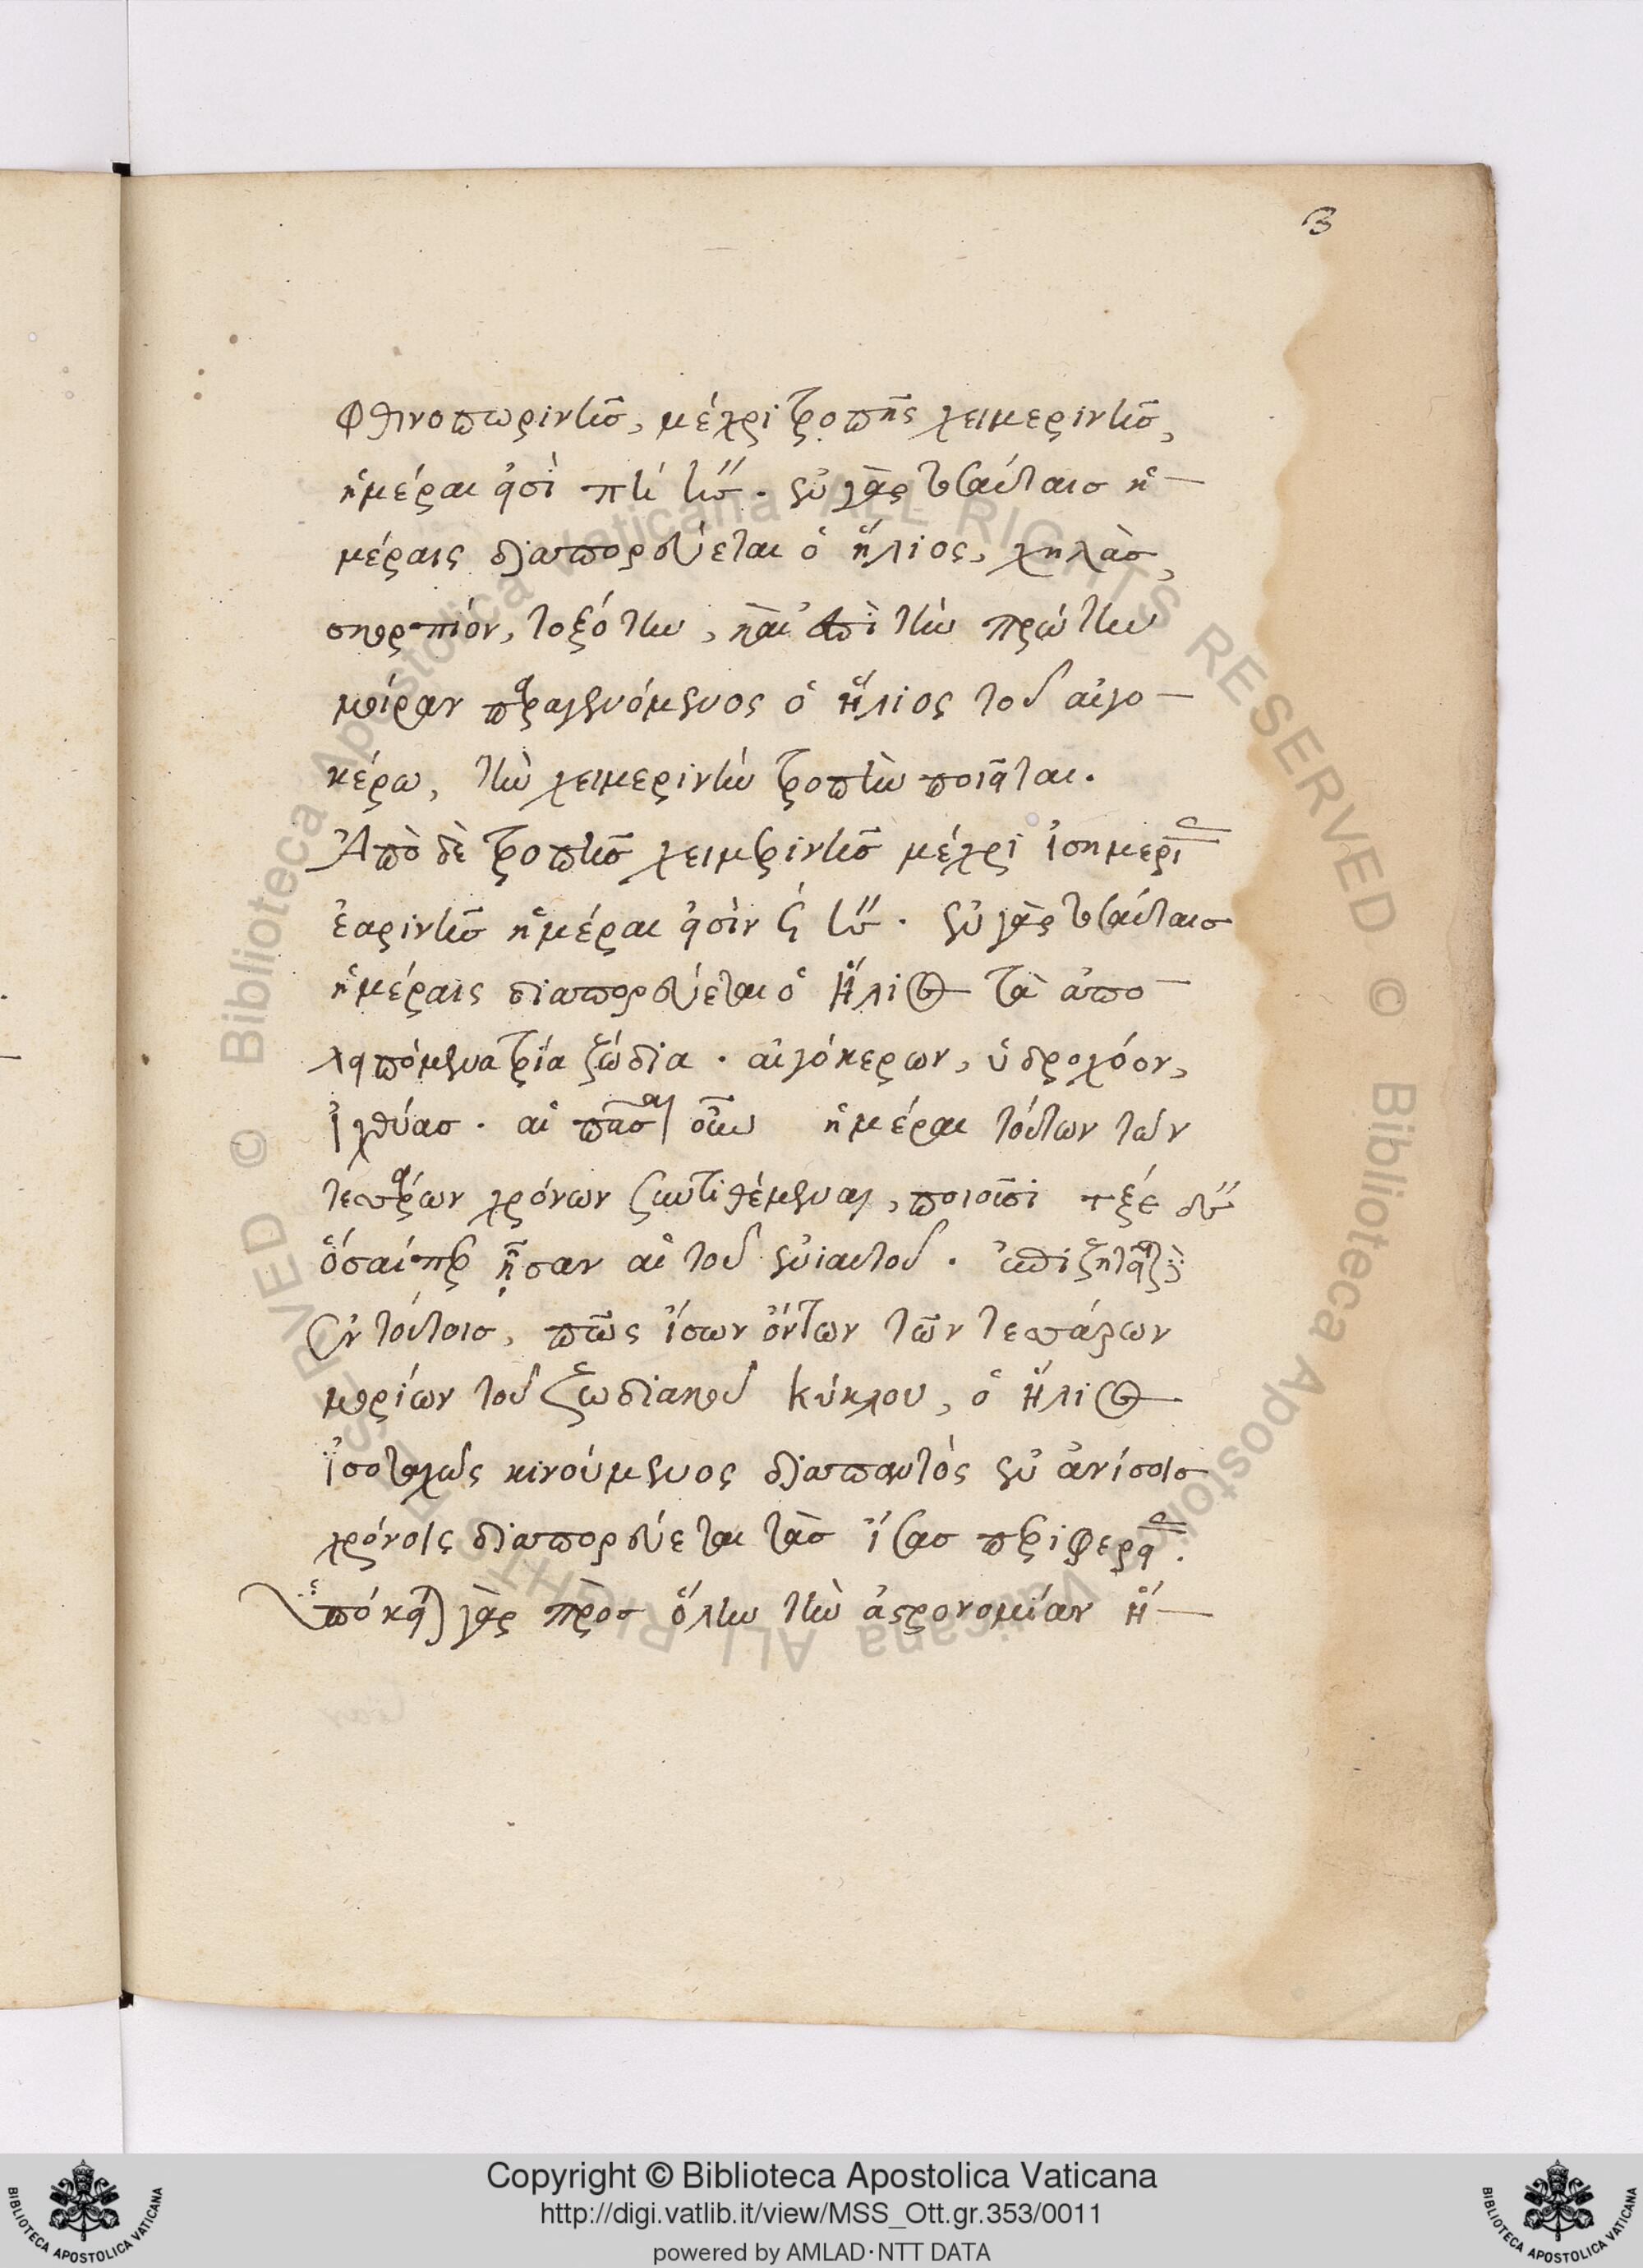 β
φθινοπωρινῆσ, μέχρι τροπῆς χειμερινῆσ,
ἡμέραι εἰσὶ πη η΄΄. ἐν γὰρ ταύταισ ἡ-
μέραις διαπορεύεται ὁ ἥλιος, χηλὰσ,
σκορπιόν, τοξότην, καὶ ἐπὶ τὴν πρώτην
μοίραν παραγενόμενος ὁ ἥλιος τοῦ αἰγο-
κέρω, τὴν χειμερινὴν τροπὴν ποιεῖται.
Ἀπὸ δὲ τροπῆσ χειμερινῆσ μέχρι ἰσημερι
ἐαρινῆσ ἡμέραι εἰσὶν ϟ η΄΄. ἐν γὰρ ταύταισ
ἡμέραις διαπορεύεται ὁ ἥλιος τὰ ἀπο-
λειπόμενα τρία ζώδια. αἰγόκερων, ὑδροχόον,
ἰχθύασ. αἱ πᾶσαι οὖν ἡμέραι τούτων τῶν
τεσσάρων χρόνων συντιθέμεναι, ποιοῦσι τξε δ΄΄
ὅσαίπερ ἦσαν αἱ τοῦ ἐνιαυτοῦ. ἐπιζητεῖται
ἐν τούτοισ, πῶς ἴσων ὄντων τῶν τεσσάρων
μορίων τοῦ ζωδιακοῦ κύκλου, ὁ ἥλιος
ἰσοταχῶς κινούμενος διαπαντός ἐν ἀνίσοισ
χρόνοις διαπορεύεται τὰσ ἴσασ περιφερεί.
Ὑπόκειται γὰρ πρὸσ ὅλην τὴν ἀστρονομίαν ἥ-
© Biblioteca Apostolica Vaticana ALL RIGHTS RESERVED
© Biblioteca Apostolica Vaticana ALL RIGHTS RESERVED
BIBLIOTECA APOSTOLICA VATICANA
Copyright © Biblioteca Apostolica Vaticana
http://digi.vatlib.it/view/MSS_Ott.gr.353/0011
powered by AMLAD·NTT DATA
BIBLIOTECA APOSTOLICA VATICANA